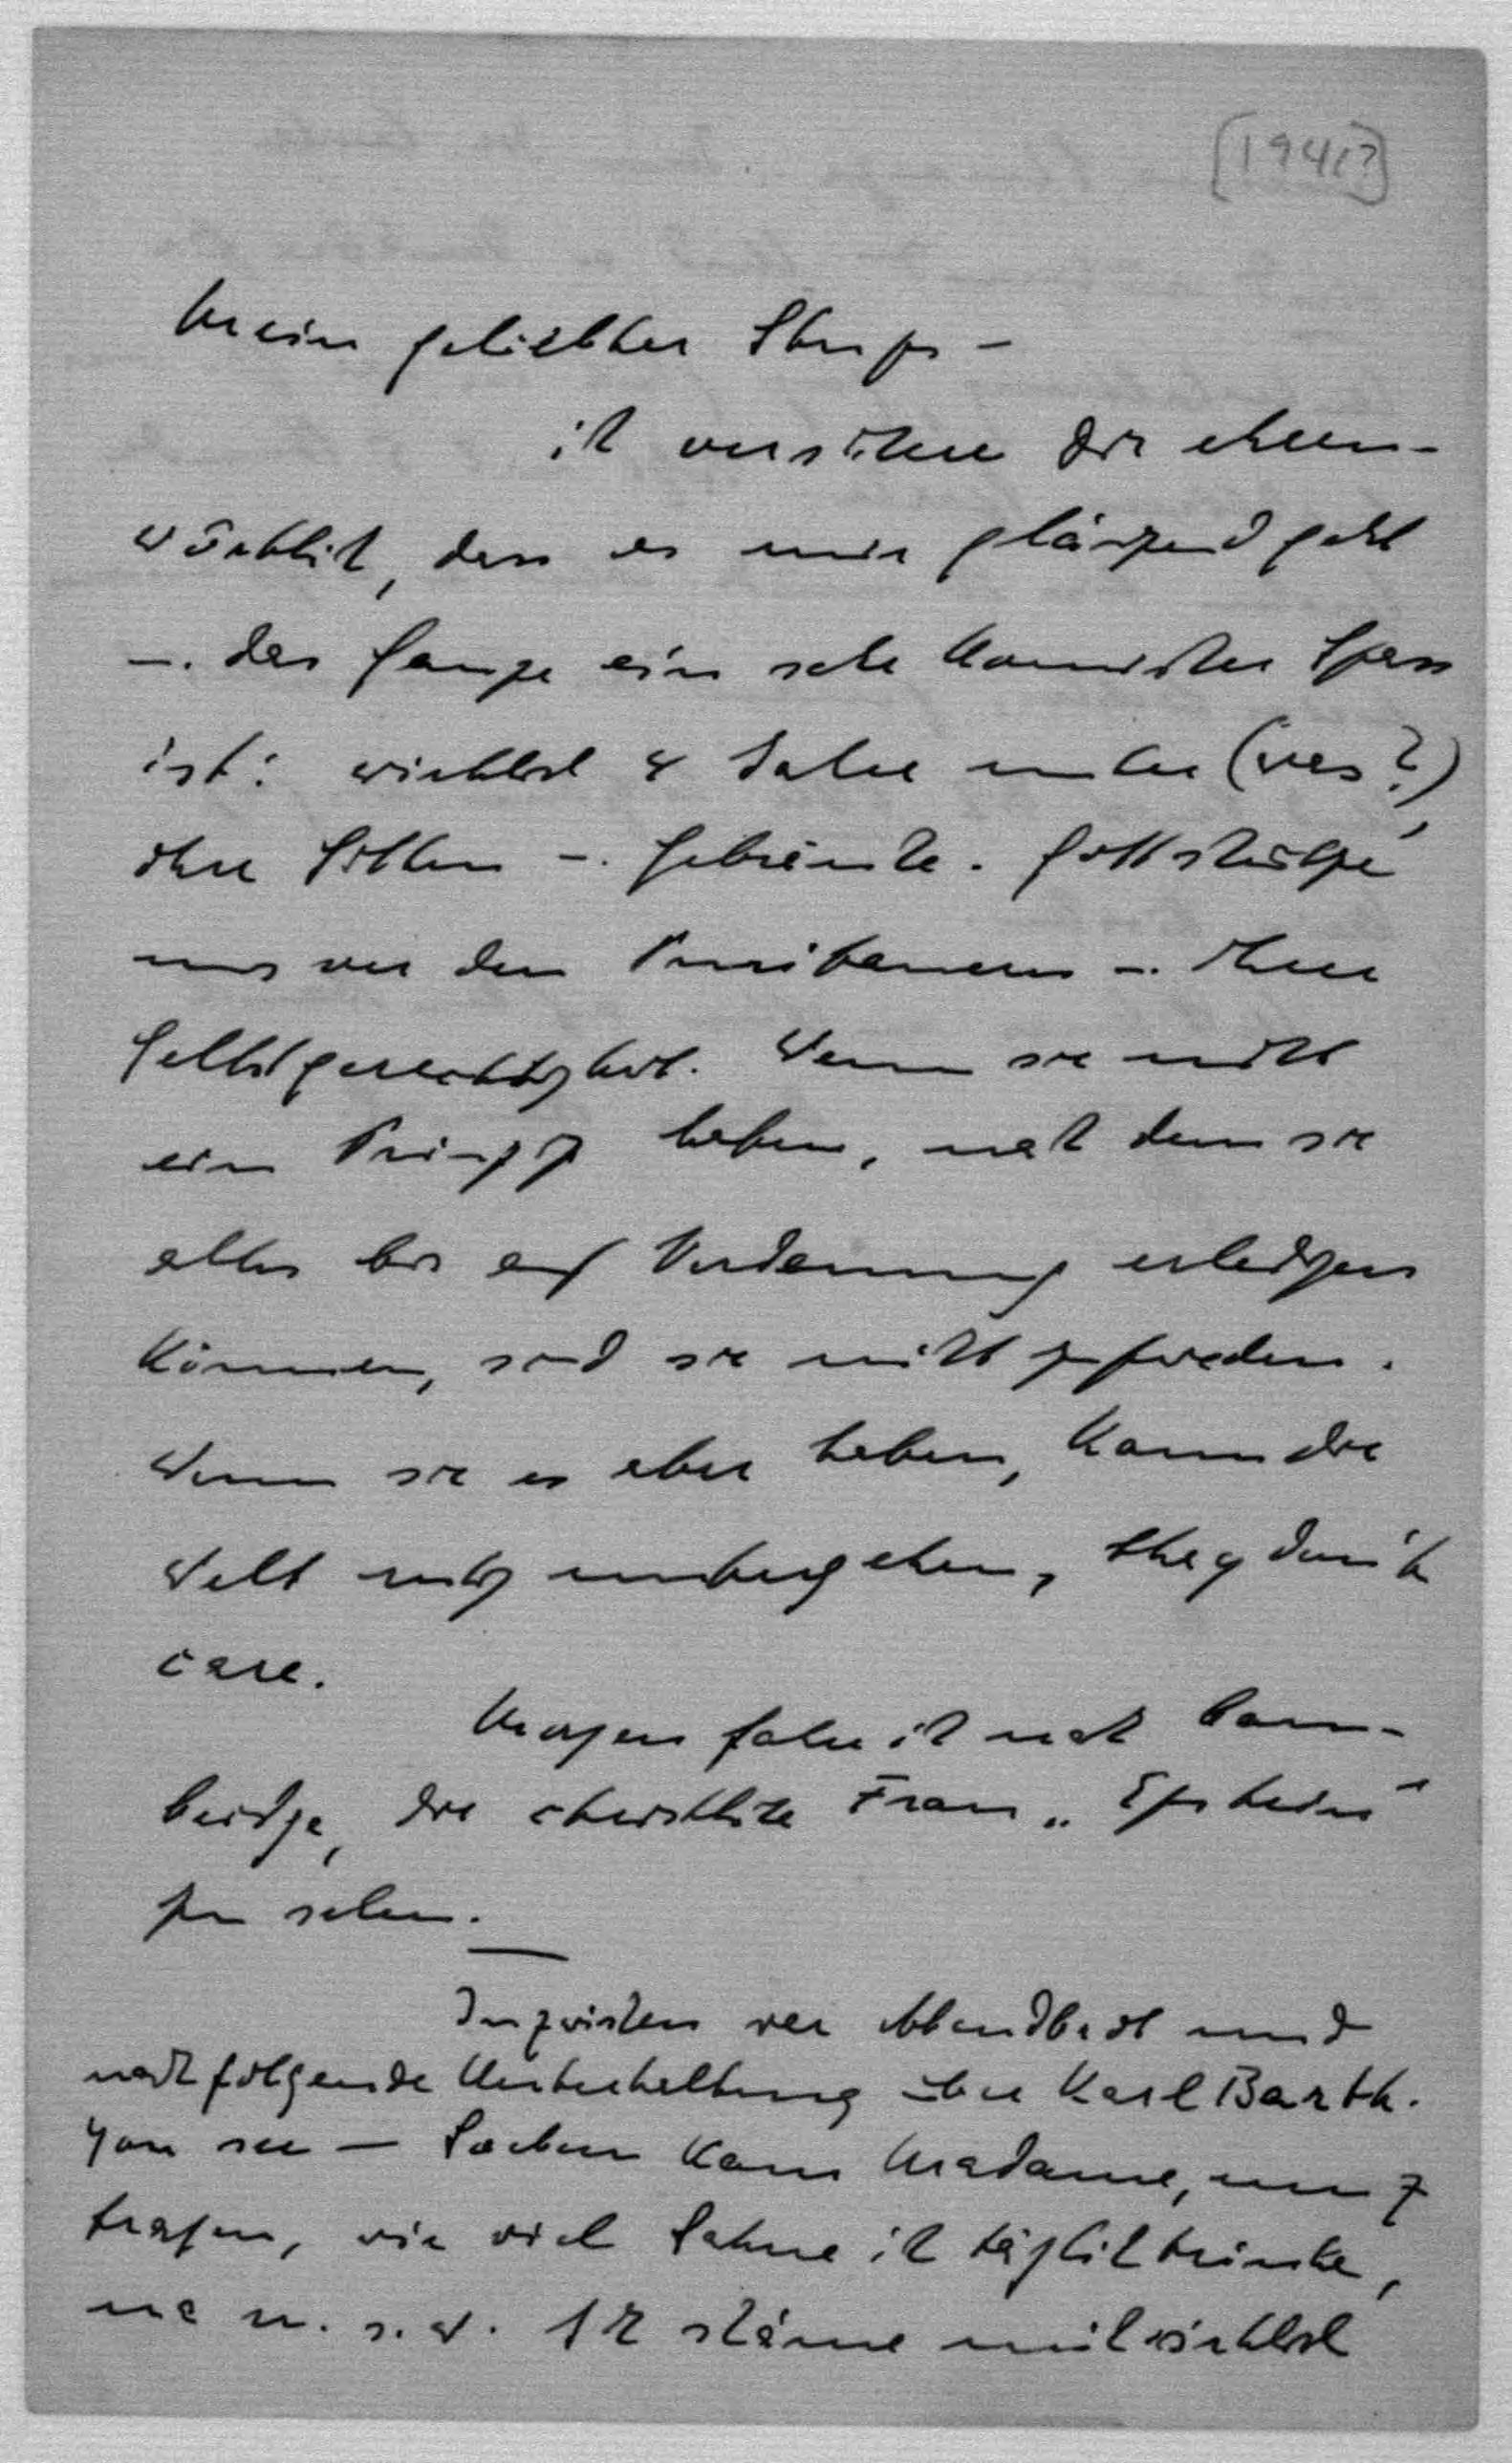 [1941?]
Mein geliebter Stups –
ich versichere Dir ehren-
wörtlich, dass es mir glänzend geht
u. das Ganze ein sehr komischer Spass
ist: wirklich 4 Jahre unter (was?)
ohne Sitten u. Gebräuche. Gott schütze
uns vor den Puritanern u. ihrer
Selbstgerechtigkeit. Wenn sie nicht
ein Prinzip haben, nach dem sie
alles bis auf Verdauung erledigen
können, sind sie nicht zufrieden.
Wenn sie es aber haben, kann die
Welt ruhig untergehen, they don't
care.
Morgen fahre ich nach Cam-
bridge, die christliche Frau „Epstein"
zu sehen.
Inzwischen war Abendbrot und
nachfolgende Unterhaltung über Karl Barth.
You see – Soeben kam Madame, um z
fragen, wie viel Sahne ich täglich trinke,
na u. s. w. Ich schäme mich wirklich